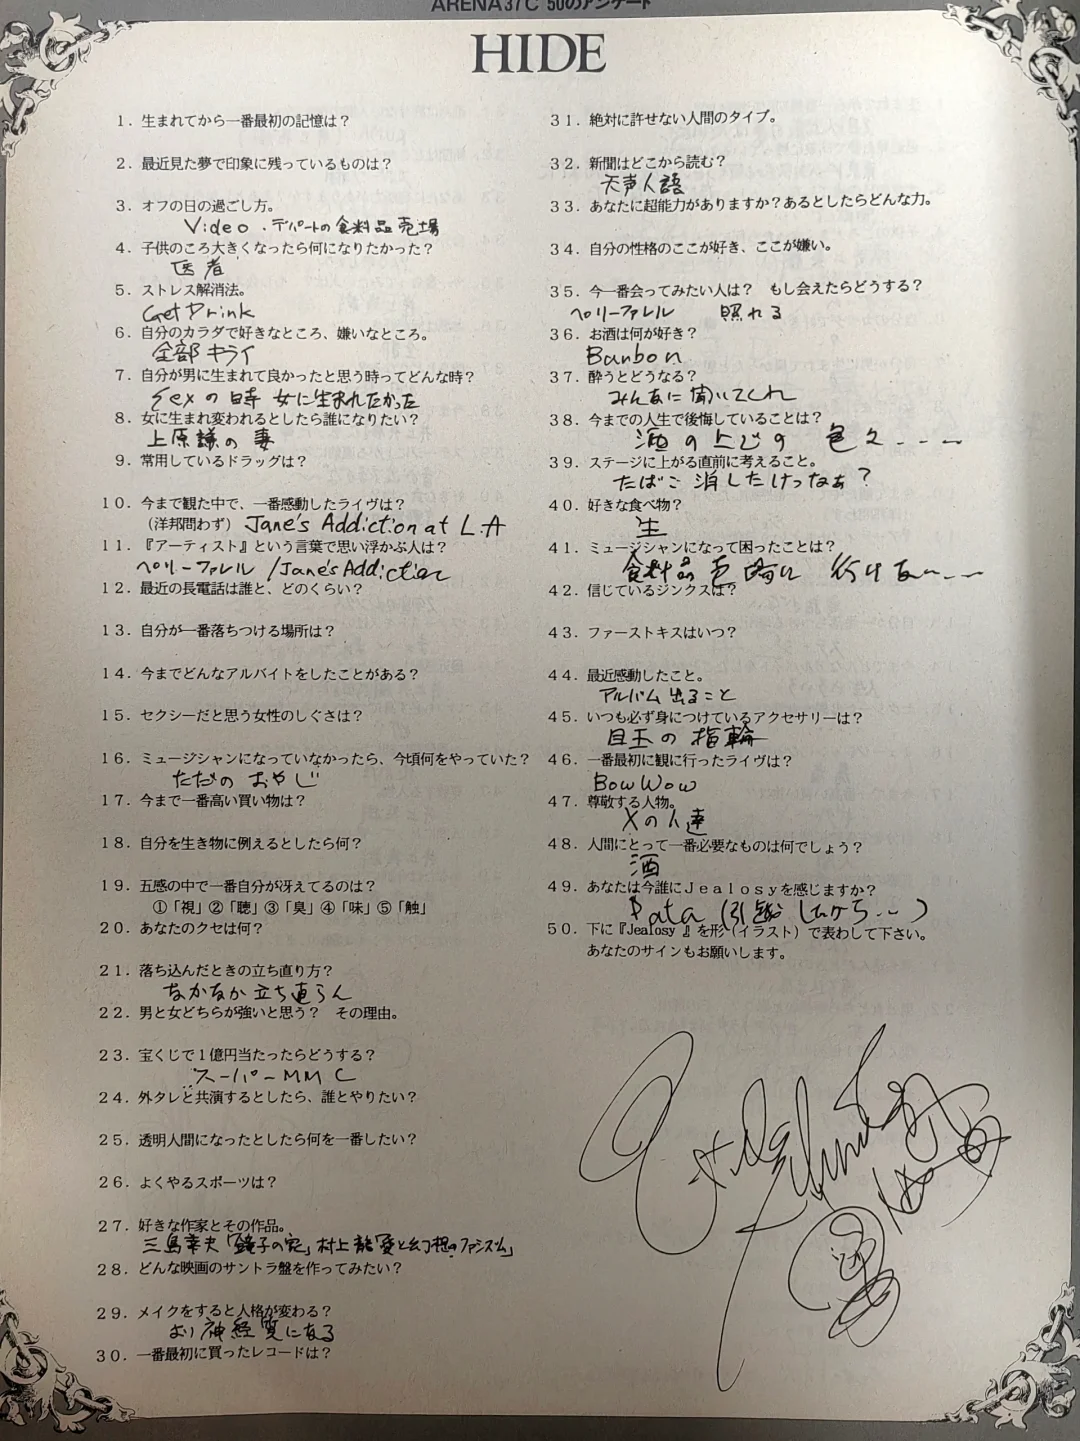 ARENA37℃ 50のアンケート
HIDE
1. 生まれてから一番最初の記憶は？
2. 最近見た夢で印象に残っているものは？
3. オフの日の過ごし方。
Video・デパートの食料品売場
4. 子供のころ大きくなったら何になりたかった？
医者
5. ストレス解消法。
Get Drink
6. 自分のカラダで好きなところ、嫌いなところ。
全部キライ
7. 自分が男に生まれて良かったと思う時ってどんな時？
Sexの時 女に生まれたかった
8. 女に生まれ変われるとしたら誰になりたい？
上原謙の妻
9. 常用しているドラッグは？
10. 今まで観た中で、一番感動したライヴは？
（洋邦問わず） Jane's Addiction at L.A
11. 『アーティスト』という言葉で思い浮かぶ人は？
ペリーファレル /Jane's Addiction
12. 最近の長電話は誰と、どのくらい？
13. 自分が一番落ちつける場所は？
14. 今までどんなアルバイトをしたことがある？
15. セクシーだと思う女性のしぐさは？
16. ミュージシャンになっていなかったら、今頃何をやっていた？
ただのおやじ
17. 今まで一番高い買い物は？
18. 自分を生き物に例えるとしたら何？
19. 五感の中で一番自分が冴えてるのは？
①「視」②「聴」③「臭」④「味」⑤「触」
20. あなたのクセは何？
21. 落ち込んだときの立ち直り方？
なかなか立ち直らん
22. 男と女どちらが強いと思う？ その理由。
23. 宝くじで1億円当たったらどうする？
スーパーMMC
24. 外タレと共演するとしたら、誰とやりたい？
25. 透明人間になったとしたら何を一番したい？
26. よくやるスポーツは？
27. 好きな作家とその作品。
三島幸夫「鏡子の家」村上龍「愛と幻想のファシズム」
28. どんな映画のサントラ盤を作ってみたい？
29. メイクをすると人格が変わる？
より神経質になる
30. 一番最初に買ったレコードは？
31. 絶対に許せない人間のタイプ。
32. 新聞はどこから読む？
天声人語
33. あなたに超能力がありますか？あるとしたらどんな力。
34. 自分の性格のここが好き、ここが嫌い。
35. 今一番会ってみたい人は？ もし会えたらどうする？
ペリーファレル 照れる
36. お酒は何が好き？
Banbon
37. 酔うとどうなる？
みんなに聞いてくれ
38. 今までの人生で後悔していることは？
酒の上での 色々----
39. ステージに上がる直前に考えること。
たばこ消したけっなぁ？
40. 好きな食べ物？
生
41. ミュージシャンになって困ったことは？
食料品売場に 行けない---
42. 信じているジンクスは？
43. ファーストキスはいつ？
44. 最近感動したこと。
アルバム出ること
45. いつも必ず身につけているアクセサリーは？
目玉の指輪
46. 一番最初に観に行ったライヴは？
BowWow
47. 尊敬する人物。
Xの人達
48. 人間にとって一番必要なものは何でしょう？
酒
49. あなたは今誰にJealosyを感じますか？
Pata (引越したから...)
50. 下に『Jealosy』を形（イラスト）で表わして下さい。
あなたのサインもお願いします。